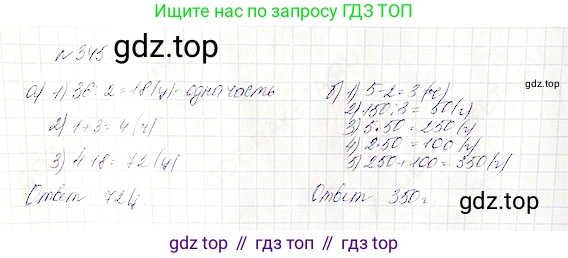 Ищите нас по запросу ГДЗ ТОП
№345
gdz.top
а) 1) 36 : 2 = 18 (ц) - одна часть
2) 1 + 3 = 4 (ч)
3) 4 · 18 = 72 (ц)
Ответ: 72ц
б) 1) 5 - 2 = 3 (ч)
2) 150 : 3 = 50 (г)
3) 5 · 50 = 250 (г)
4) 2 · 50 = 100 (г)
5) 250 + 100 = 350 (г)
Ответ: 350г.
gdz.top
gdz.top
gdz.top // гдз топ // гдз.top